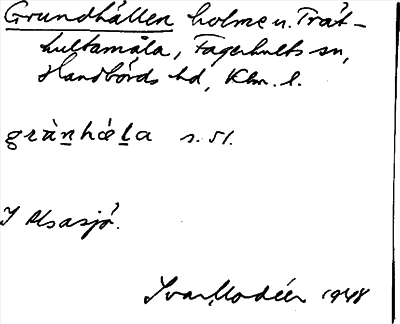 Grundhällen holme u. Trät-
hultamåla, Fagerhults sn,
Handbörds hd, Klm. l.
grànhæla s. 51.
I Alsasjö.
Ivar Modéer 1948